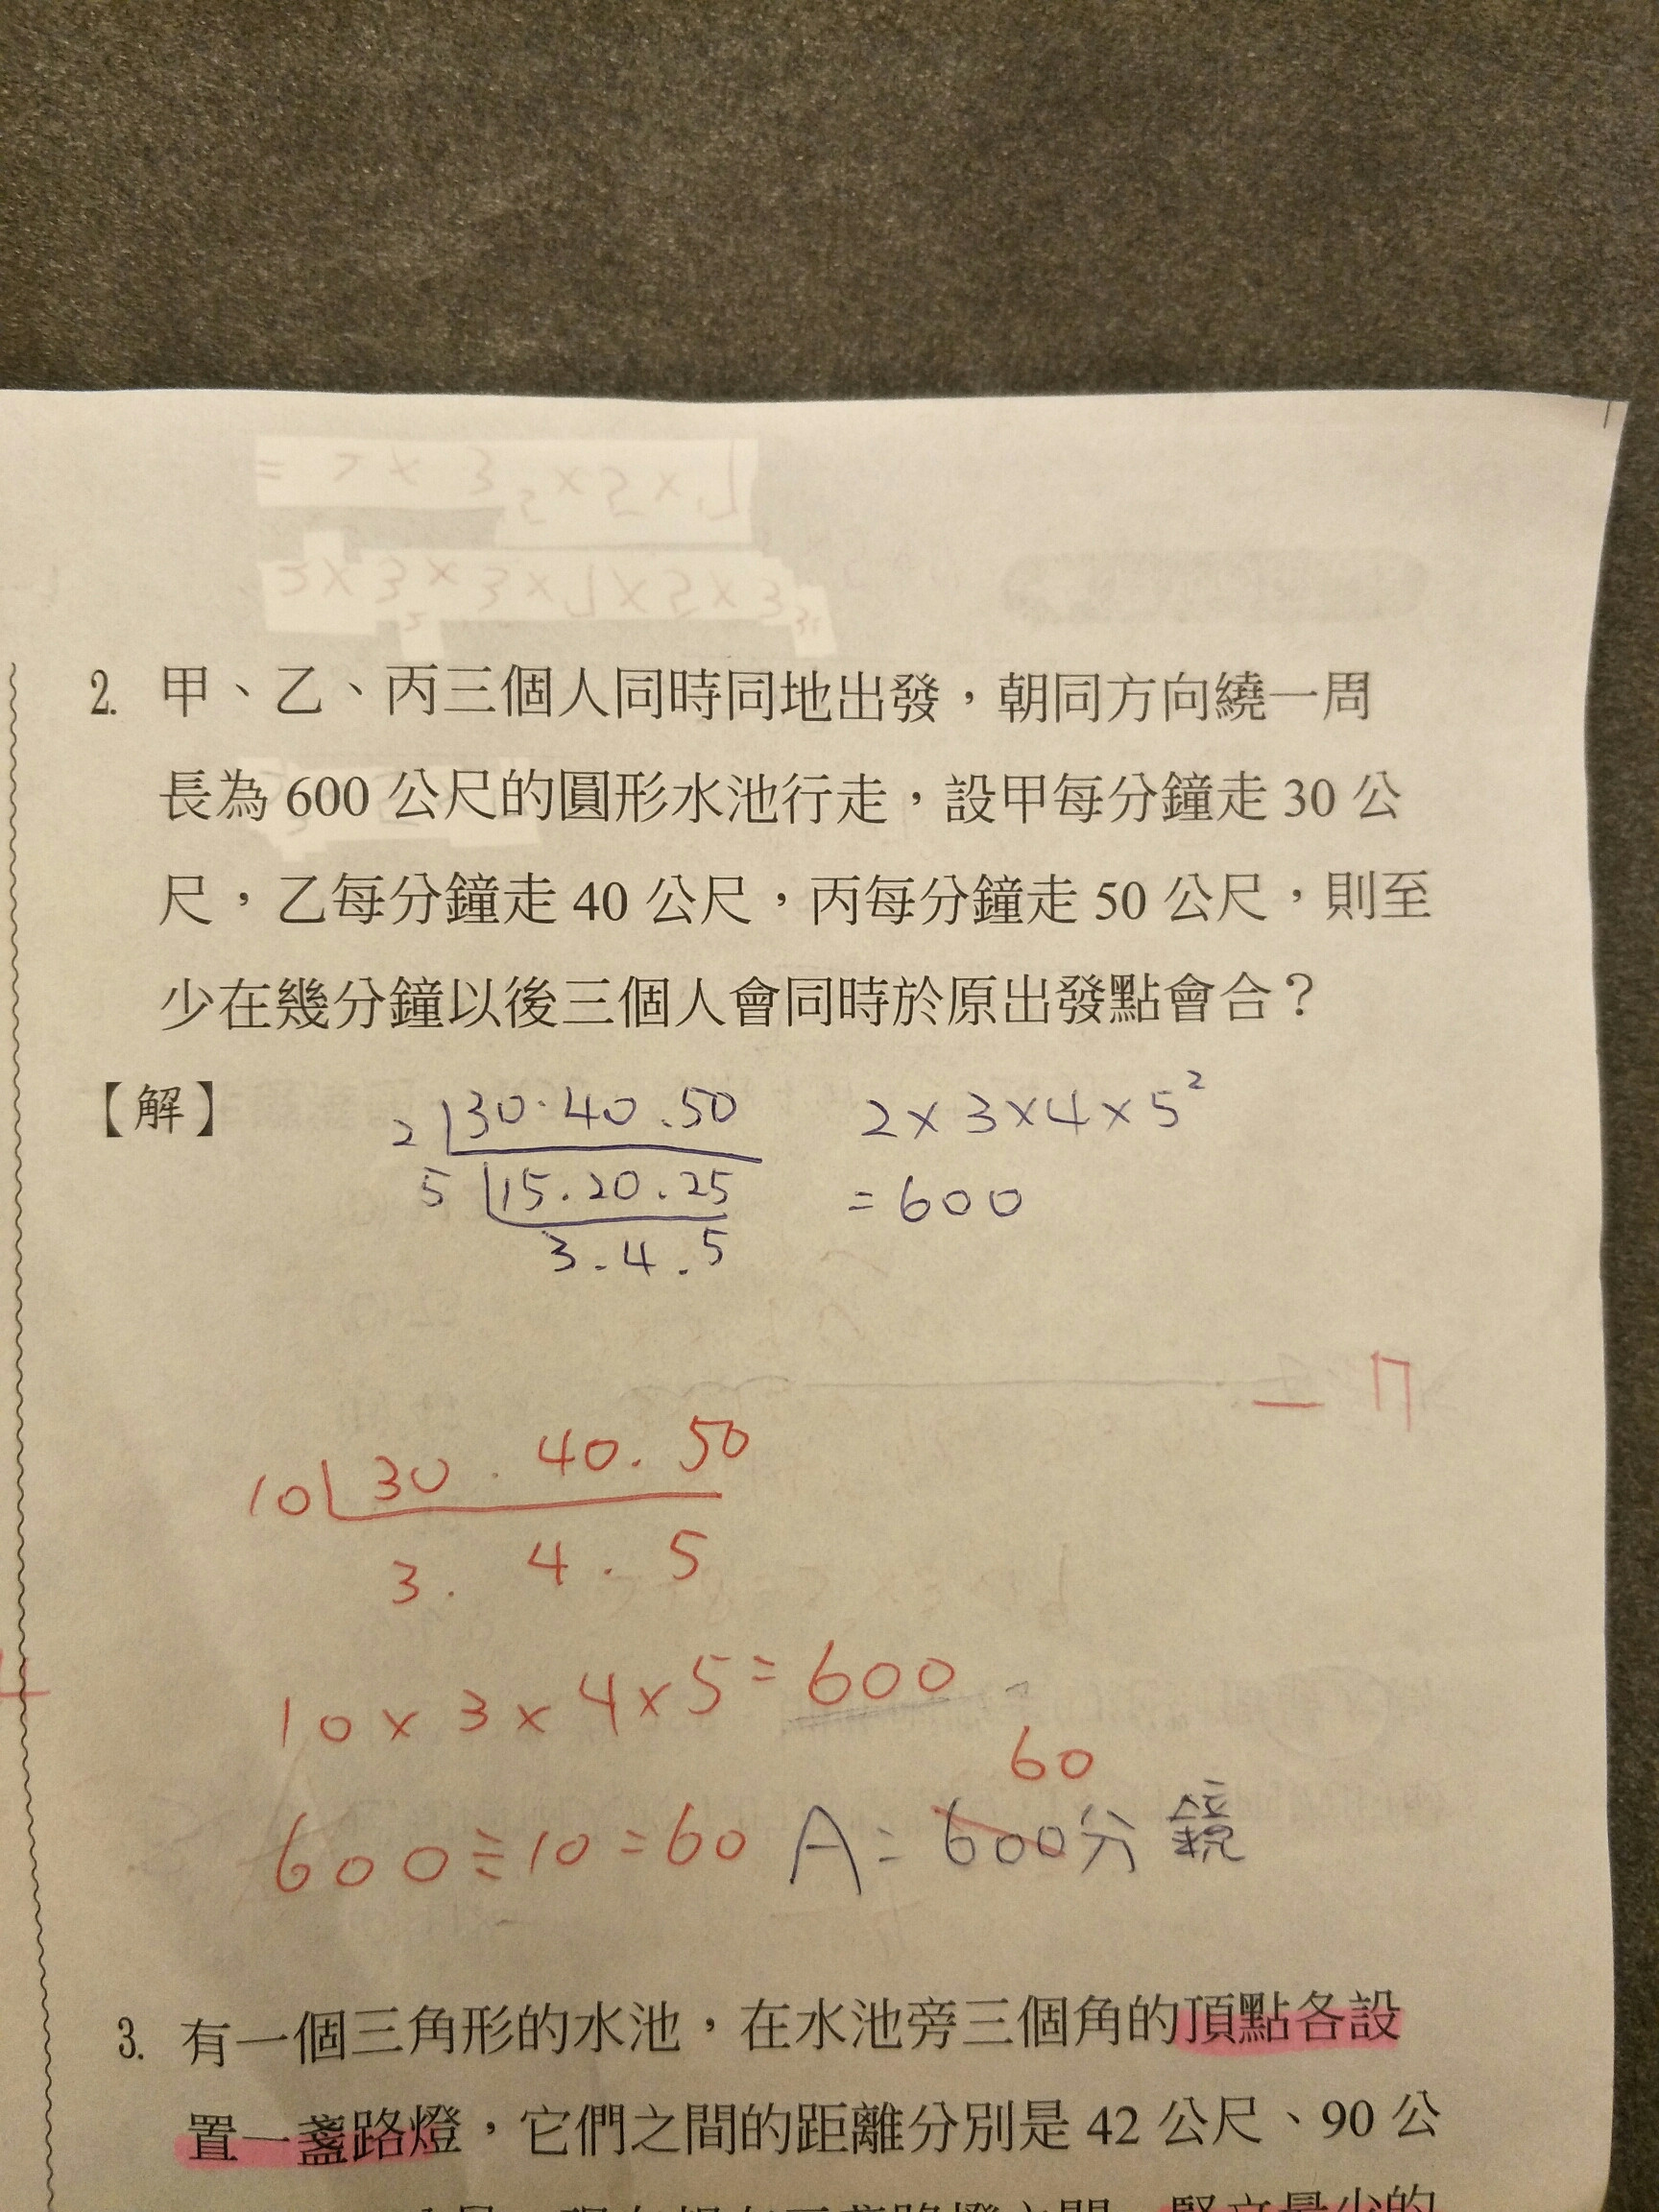 2. 甲、乙、丙三個人同時同地出發，朝同方向繞一周
長為 600 公尺的圓形水池行走，設甲每分鐘走 30 公
尺，乙每分鐘走 40 公尺，丙每分鐘走 50 公尺，則至
少在幾分鐘以後三個人會同時於原出發點會合？
【解】
2 30.40.50
2×3×4×5²
5 15.20.25
=600
3.4.5
-17
10 30.40.50
3.4.5
10×3×4×5=600
60
600÷10=60 A=600分鐘
3. 有一個三角形的水池，在水池旁三個角的頂點各設
置一盞路燈，它們之間的距離分別是 42 公尺、90 公